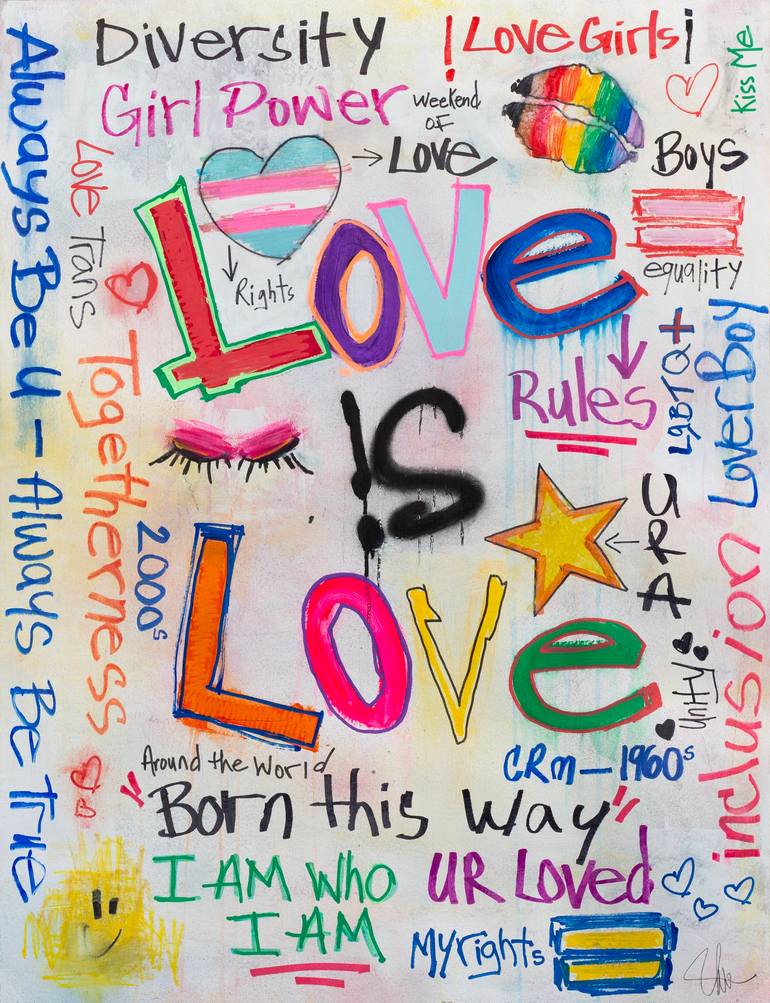 Diversity
! Love Girls ¡
Kiss Me
Girl Power
Weekend
OF
Love
Boys
Always Be U - Always Be True
Love Trans
Rights
Love
equality
Rules
LGBTQ+
Lover Boy
Togetherness
2000s
is
U R A
Love
Unity
inclusion
Around the World
CRM - 1960s
"Born this way"
I AM Who
I AM
UR Loved
My rights